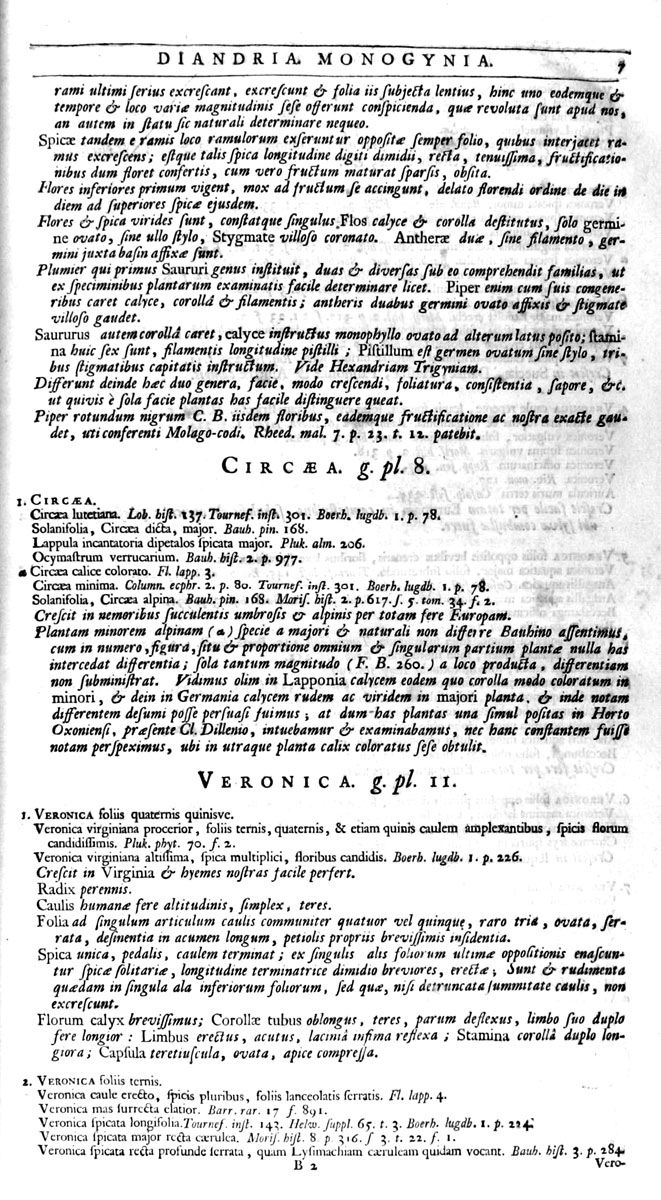 DIANDRIA. MONOGYNIA. 7
rami ultimi serius excrescant, excrescunt & folia iis subjecta lentius, hinc uno eodemque &
tempore & loco variæ magnitudinis sese offerunt conspicienda, quæ revoluta sunt apud nos,
an autem in statu sic naturali determinare nequeo.
Spicæ tandem e ramis loco ramulorum exseruntur oppositæ semper folio, quibus interjacet ra-
mus excrescens; estque talis spica longitudine digiti dimidii, recta, tenuissima, fructificatio-
nibus dum floret confertis, cum vero fructum maturat sparsis, obsita.
Flores inferiores primum vigent, mox ad fructum se accingunt, delato florendi ordine de die in
diem ad superiores spicæ ejusdem.
Flores & spica virides sunt, constatque singulus Flos calyce & corolla destitutus, solo germi-
ne ovato, sine ullo stylo, Stygmate villoso coronato. Antheræ duæ, sine filamento, ger-
mini juxta basin affixæ sunt.
Plumier qui primus Saururi genus instituit, duas & diversas sub eo comprehendit familias, ut
ex speciminibus plantarum examinatis facile determinare licet. Piper enim cum suis congene-
ribus caret calyce, corollâ & filamentis; antheris duabus germini ovato affixis & stigmate
villoso gaudet.
Saururus autem corollâ caret, calyce instructus monophyllo ovato ad alterum latus posito; stami-
na huic sex sunt, filamentis longitudine pistilli; Pistillum est germen ovatum sine stylo, tri-
bus stigmatibus capitatis instructum. Vide Hexandriam Trigyniam.
Differunt deinde hæc duo genera, facie, modo crescendi, foliatura, consistentia, sapore, &c.
ut quivis è sola facie plantas has facile distinguere queat.
Piper rotundum nigrum C. B. iisdem floribus, eademque fructificatione ac nostra exacte gau-
det, uti conferenti Molago-codi. Rheed. mal. 7. p. 23. t. 12. patebit.
CIRCÆA. g. pl. 8.
1. CIRCÆA.
Circæa lutetiana. Lob. hist. 137. Tournef. inst. 301. Boerh. lugdb. 1. p. 78.
Solanifolia, Circæa dicta, major. Bauh. pin. 168.
Lappula incantatoria dipetalos spicata major. Pluk. alm. 206.
Ocymastrum verrucarium. Bauh. hist. 2. p. 977.
α Circæa calice colorato. Fl. lapp. 3.
Circæa minima. Column. ecphr. 2. p. 80. Tournef. inst. 301. Boerh. lugdb. 1. p. 78.
Solanifolia, Circæa alpina. Bauh. pin. 168. Moris. hist. 2. p. 617. s. 5. tom. 34. f. 2.
Crescit in nemoribus succulentis umbrosis & alpinis per totam fere Europam.
Plantam minorem alpinam (α) specie a majori & naturali non differre Bauhino assentimus,
cum in numero, figura, situ & proportione omnium & singularum partium plantæ nulla has
intercedat differentia; sola tantum magnitudo (F. B. 260.) a loco producta, differentiam
non subministrat. Vidimus olim in Lapponia calycem eodem quo corolla modo coloratum in
minori, & dein in Germania calycem rudem ac viridem in majori planta, & inde notam
differentem desumi posse persuasi fuimus; at dum has plantas una simul positas in Horto
Oxoniensi, præsente Cl. Dillenio, intuebamur & examinabamus, nec hanc constantem fuisse
notam perspeximus, ubi in utraque planta calix coloratus sese obtulit.
VERONICA. g. pl. 11.
1. VERONICA foliis quaternis quinisve.
Veronica virginiana procerior, foliis ternis, quaternis, & etiam quinis caulem amplexantibus, spicis florum
candidissimis. Pluk. phyt. 70. f. 2.
Veronica virginiana altissima, spica multiplici, floribus candidis. Boerh. lugdb. 1. p. 226.
Crescit in Virginia & hyemes nostras facile perfert.
Radix perennis.
Caulis humanæ fere altitudinis, simplex, teres.
Folia ad singulum articulum caulis communiter quatuor vel quinque, raro tria, ovata, ser-
rata, desinentia in acumen longum, petiolis propriis brevissimis insidentia.
Spica unica, pedalis, caulem terminat; ex singulis alis foliorum ultimæ oppositionis enascun-
tur spicæ solitariæ, longitudine terminatrice dimidio breviores, erectæ; Sunt & rudimenta
quædam in singula ala inferiorum foliorum, sed quæ, nisi detruncata summitate caulis, non
excrescunt.
Florum calyx brevissimus; Corollæ tubus oblongus, teres, parum deflexus, limbo suo duplo
fere longior: Limbus erectus, acutus, laciniâ infima reflexa; Stamina corollâ duplo lon-
giora; Capsula teretiuscula, ovata, apice compressa.
2. VERONICA foliis ternis.
Veronica caule erecto, spicis pluribus, foliis lanceolatis serratis. Fl. lapp. 4.
Veronica mas surrecta elatior. Barr. rar. 17 f. 891.
Veronica spicata longifolia. Tournef. inst. 143. Helw. suppl. 65. t. 3. Boerh. lugdb. 1. p. 224.
Veronica spicata major recta cærulea. Moris. hist. 8. p. 316. s 3. t. 22. f. 1.
Veronica spicata recta profunde serrata, quam Lysimachiam cæruleam quidam vocant. Bauh. hist. 3. p. 284.
B 2 Vero-